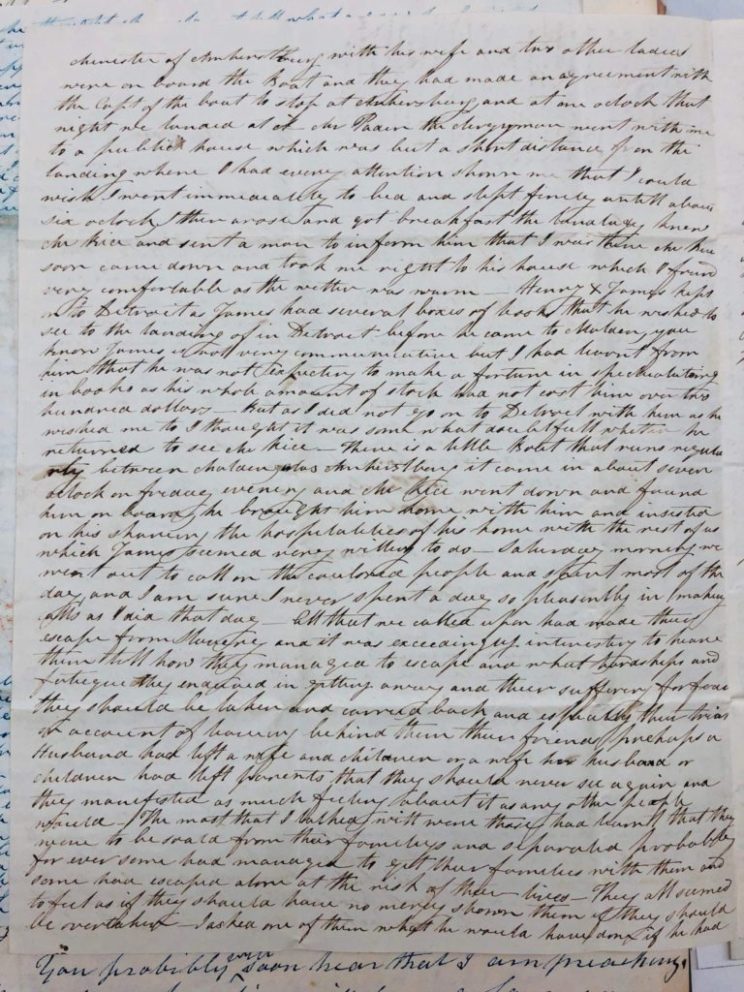 minister of Amherstburg with his wife and two other ladies
were on board the Boat and they had made an agreement with
the Capt of the boat to stop at Amhersburg and at one oclock that
night we landed at it Mr the clergyman went with me
to a publick house which was but a short distance from the
landing where I had every attention shown me that I could
wish I went immediately to bed and slept finely untill about
six oclock then arose and got breakfast the landlady knew
Mr Rice and sent a man to inform him that I was there Mr Rice
soon came down and took me right to his house which I found
very comfortable as the wether was warm — Henry & James kept
on to Detroit as James had several boxes of books that he wished to
see to the landing of in Detroit before he came to Malden, you
know James is not very communicative but I had learnt from
him that he was not expecting to make a fortune in speculating
in books as his whole amount of stock had not cost him over two
hundred dollars — But as I did not go on to Detroit with him as he
wished me to I thought it was some what doubtfull whether he
returned to see Mr Rice — There is a little Boat that runs regula
rly between Malden alias Amherstburg it came in about seven
oclock on friday evening and Mr Rice went down and found
him on board, he brought him home with him and insisted
on his sharing the hospitalities of his home with the rest of us
which James seemed very willing to do — Saturday morning we
went out to call on the coulored people and spent most of the
day and I am sure I never spent a day so pleasently in making
calls as I did that day — All that we called upon had made their
escape form Slavery and it was exceedingly interesting to heare
them tell how they managed to escape and what hardships and
fatigue they endured in getting away and their suffering for fear
they should be taken and carried back and especially their trials
on account of leaving behind them their friends, perhaps a
Husband had left a wife and children or a wife her husband or
children had left parents that they should never see again and
they manifested as much feeling about it as any other people
would — The most that I talked with were those had learnt that they
were to be soald from their families and separated probably
for ever some had managed to get their families with them and
some had escaped alone at the risk of their lives — They all seemed
to feel as if they should have no mercy shown them if they should
be overtaken — I asked one of them what he would have done if he had
You probably will soon hear that I am preaching.